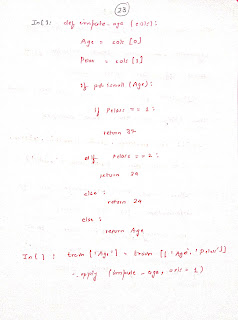 23
In[ ]: def impute_age (cols):
Age = cols [0]
Pclass = cols [1]
if pd.isnull (Age):
if Pclass == 1:
return 37
elif Pclass == 2:
return 29
else:
return 24
else:
return Age
In[ ]: train ['Age'] = train [['Age', 'Pclass']]
.apply (impute_age, axis = 1)